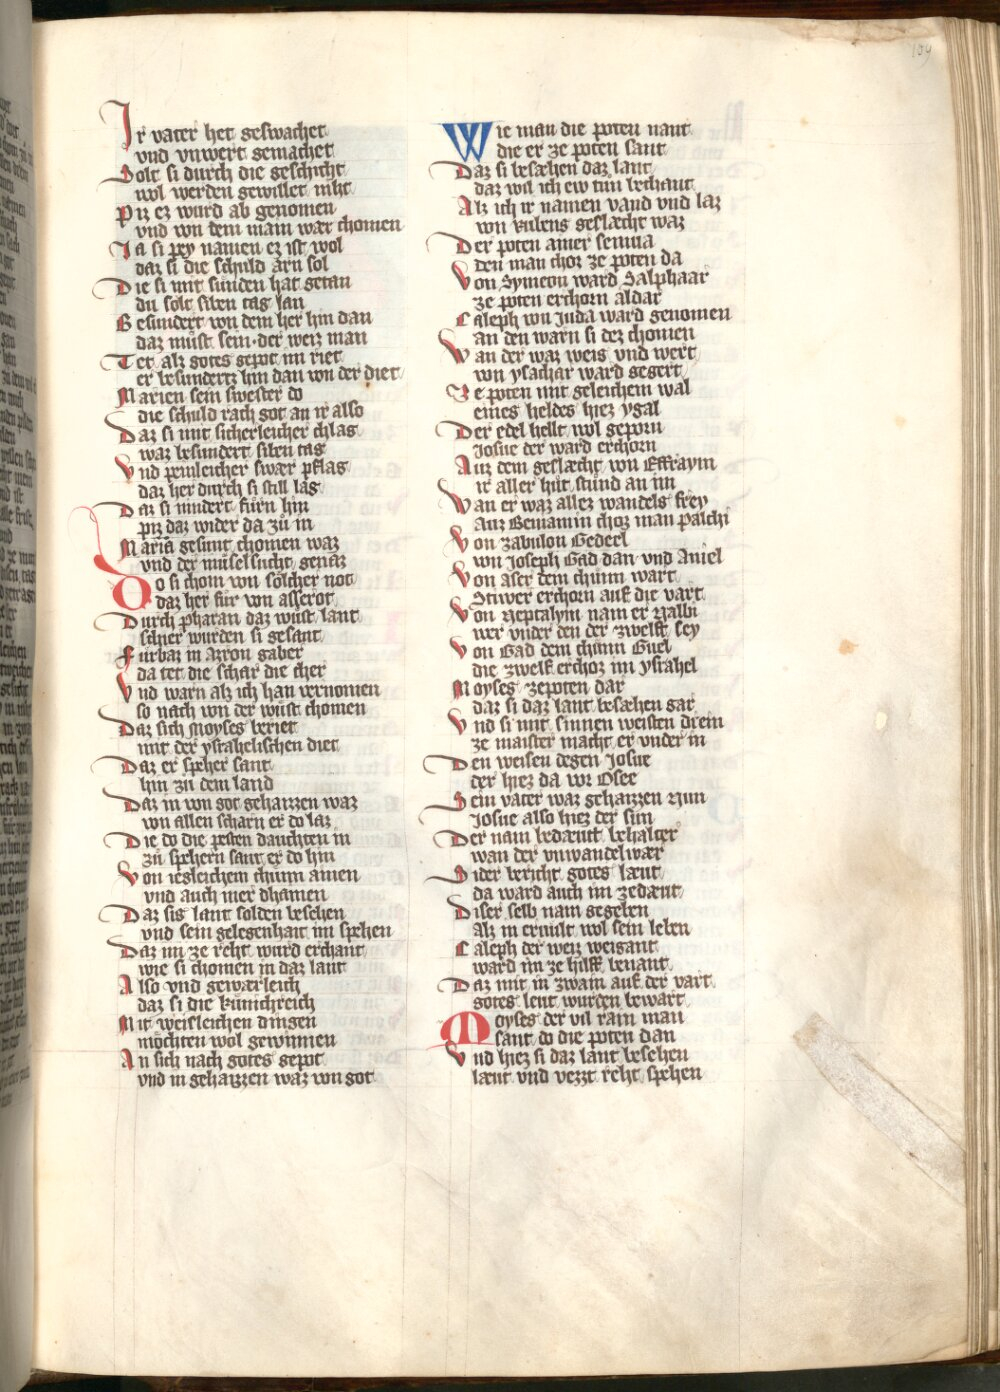 109
Ir vater het geswachet
vnd vnwert gemachet
Solt si durch die geschicht
wol werden gewillet niht
Piz ez wurd ab genomen
vnd von dem mam wær chomen
Ja si pey namen ez ist wol
daz si die schuld arn sol
Die si mit sünden hat getan
du solt siben tag lan
Gesundert von dem her hin dan
daz müst sein der weiz man
Tet alz gotes gepot im riet
er besundertz hin dan von der diet
Marien sein swester do
die schuld rach got an ir also
Daz si mit sicherleicher chlag
waz besundert siben tag
Vnd peinleicher swær pflag
daz her durch si still lag
Daz si nindert fürn hin
piz daz wider da zü in
Maria gesunt chomen waz
vnd der müselsucht genaz
Do si chom von sölcher not
daz her für von asserot
Durch pharan daz wüst lant
schier wurden si gesant
Fürbaz in Azron gaber
da tet die schar die cher
Vnd warn alz ich han vernomen
so nach von der wüst chomen
Daz sich Moyses beriet
mit der ysrahelischen diet
Daz er speher sant
hin zu dem land
Daz in von got gehaizzen waz
von allen scharn er do laz
Die do die pesten dauchten in
zü spehern sant er do hin
Von iegleichem chunn ainen
vnd auch mer dhainen
Daz sis lant solden besehen
vnd sein gelegenhait im spehen
Daz im ze reht wurd erchant
wie si chomen in daz lant
Also vnd gewærleich
daz si die künichreich
Mit weisleichen dingen
möchten wol gewinnen
An sich nach gotes gepot
vnd in gehaizzen waz von got
Wie man die poten nant
die er ze poten sant
Daz si besæhen daz lant
daz wil ich ew tun bechant
Alz ich ir namen vand vnd laz
von Rubens geslæcht waz
Der poten ainer semua
den man choz ze poten da
Von Symeon ward Salphaar
ze poten erchorn aldar
Caleph von Juda ward genomen
an den warn si dez chomen
Wan der waz weis vnd wert
von ysachar ward gegert
Ze poten mit geleichem wal
eines heldes hiez ygal
Der edel hellt wol geporn
Josue der ward erchorn
Auz dem geslæcht von Effraym
ir aller hüt stund an im
Wan er waz allez wandels frey
Auz Beniamin choz man palchi
Von zabulon Gedeel
von Joseph Gad dan vnd Amel
Von aser dem chünn wart
Stiwer erchorn auf die vart
Von Neptalym nam er Nalbi
wer vnder den der zwelft sey
Von Gad dem chünn Guel
die zwelf erchoz im ysrahel
Moyses ze poten dar
daz si daz lant besæhen gar
Vnd si mit sinnen weisten drein
ze maister macht er vnder in
Den weisen degen Josue
der hiez da vor Osee
Sein vater waz gehaizzen Nun
Josue also hiez der sun
Der nam bedæutt behalter
wan der vnwandelwær
Sider bericht gotes læut
da ward auch im zedæut
Diser selb nam gegeben
Alz in erwilt wol sein leben
Caleph der weiz weigant
ward im ze hilff benant
Daz mit in zwain auf der vart
gotes leut wurden bewart
Moyses der vil rain man
sant do die poten dan
Vnd hiez si daz lant besehen
læut vnd vezzt reht spehen